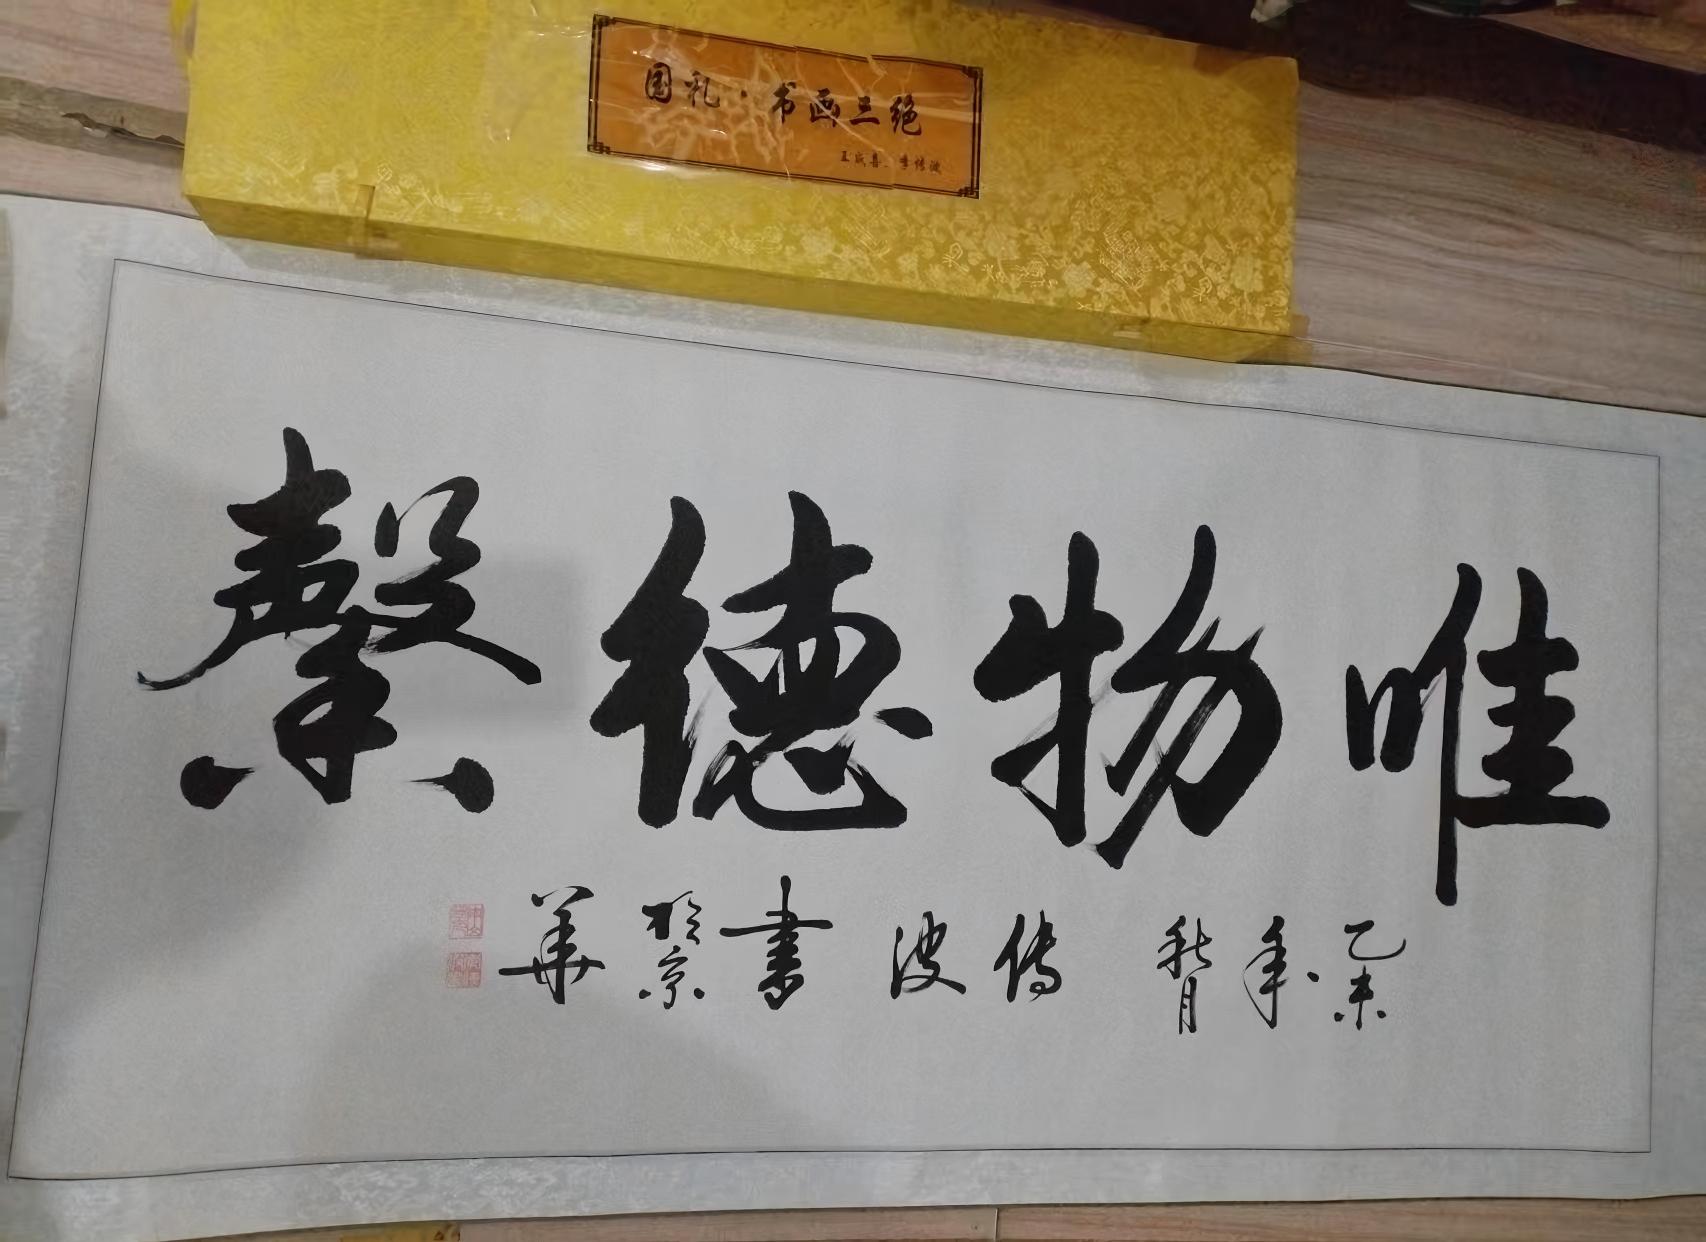 国礼·书画三绝
王成喜 李传波
唯物德馨
乙未年秋月传波书於京華